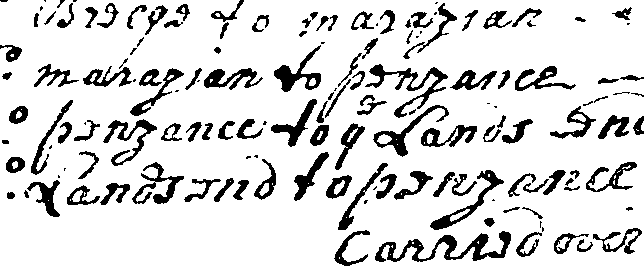 Breage to marazian - -
marazian to penzance -
penzance to ye Lands End
Lands End to penzance
Carried over